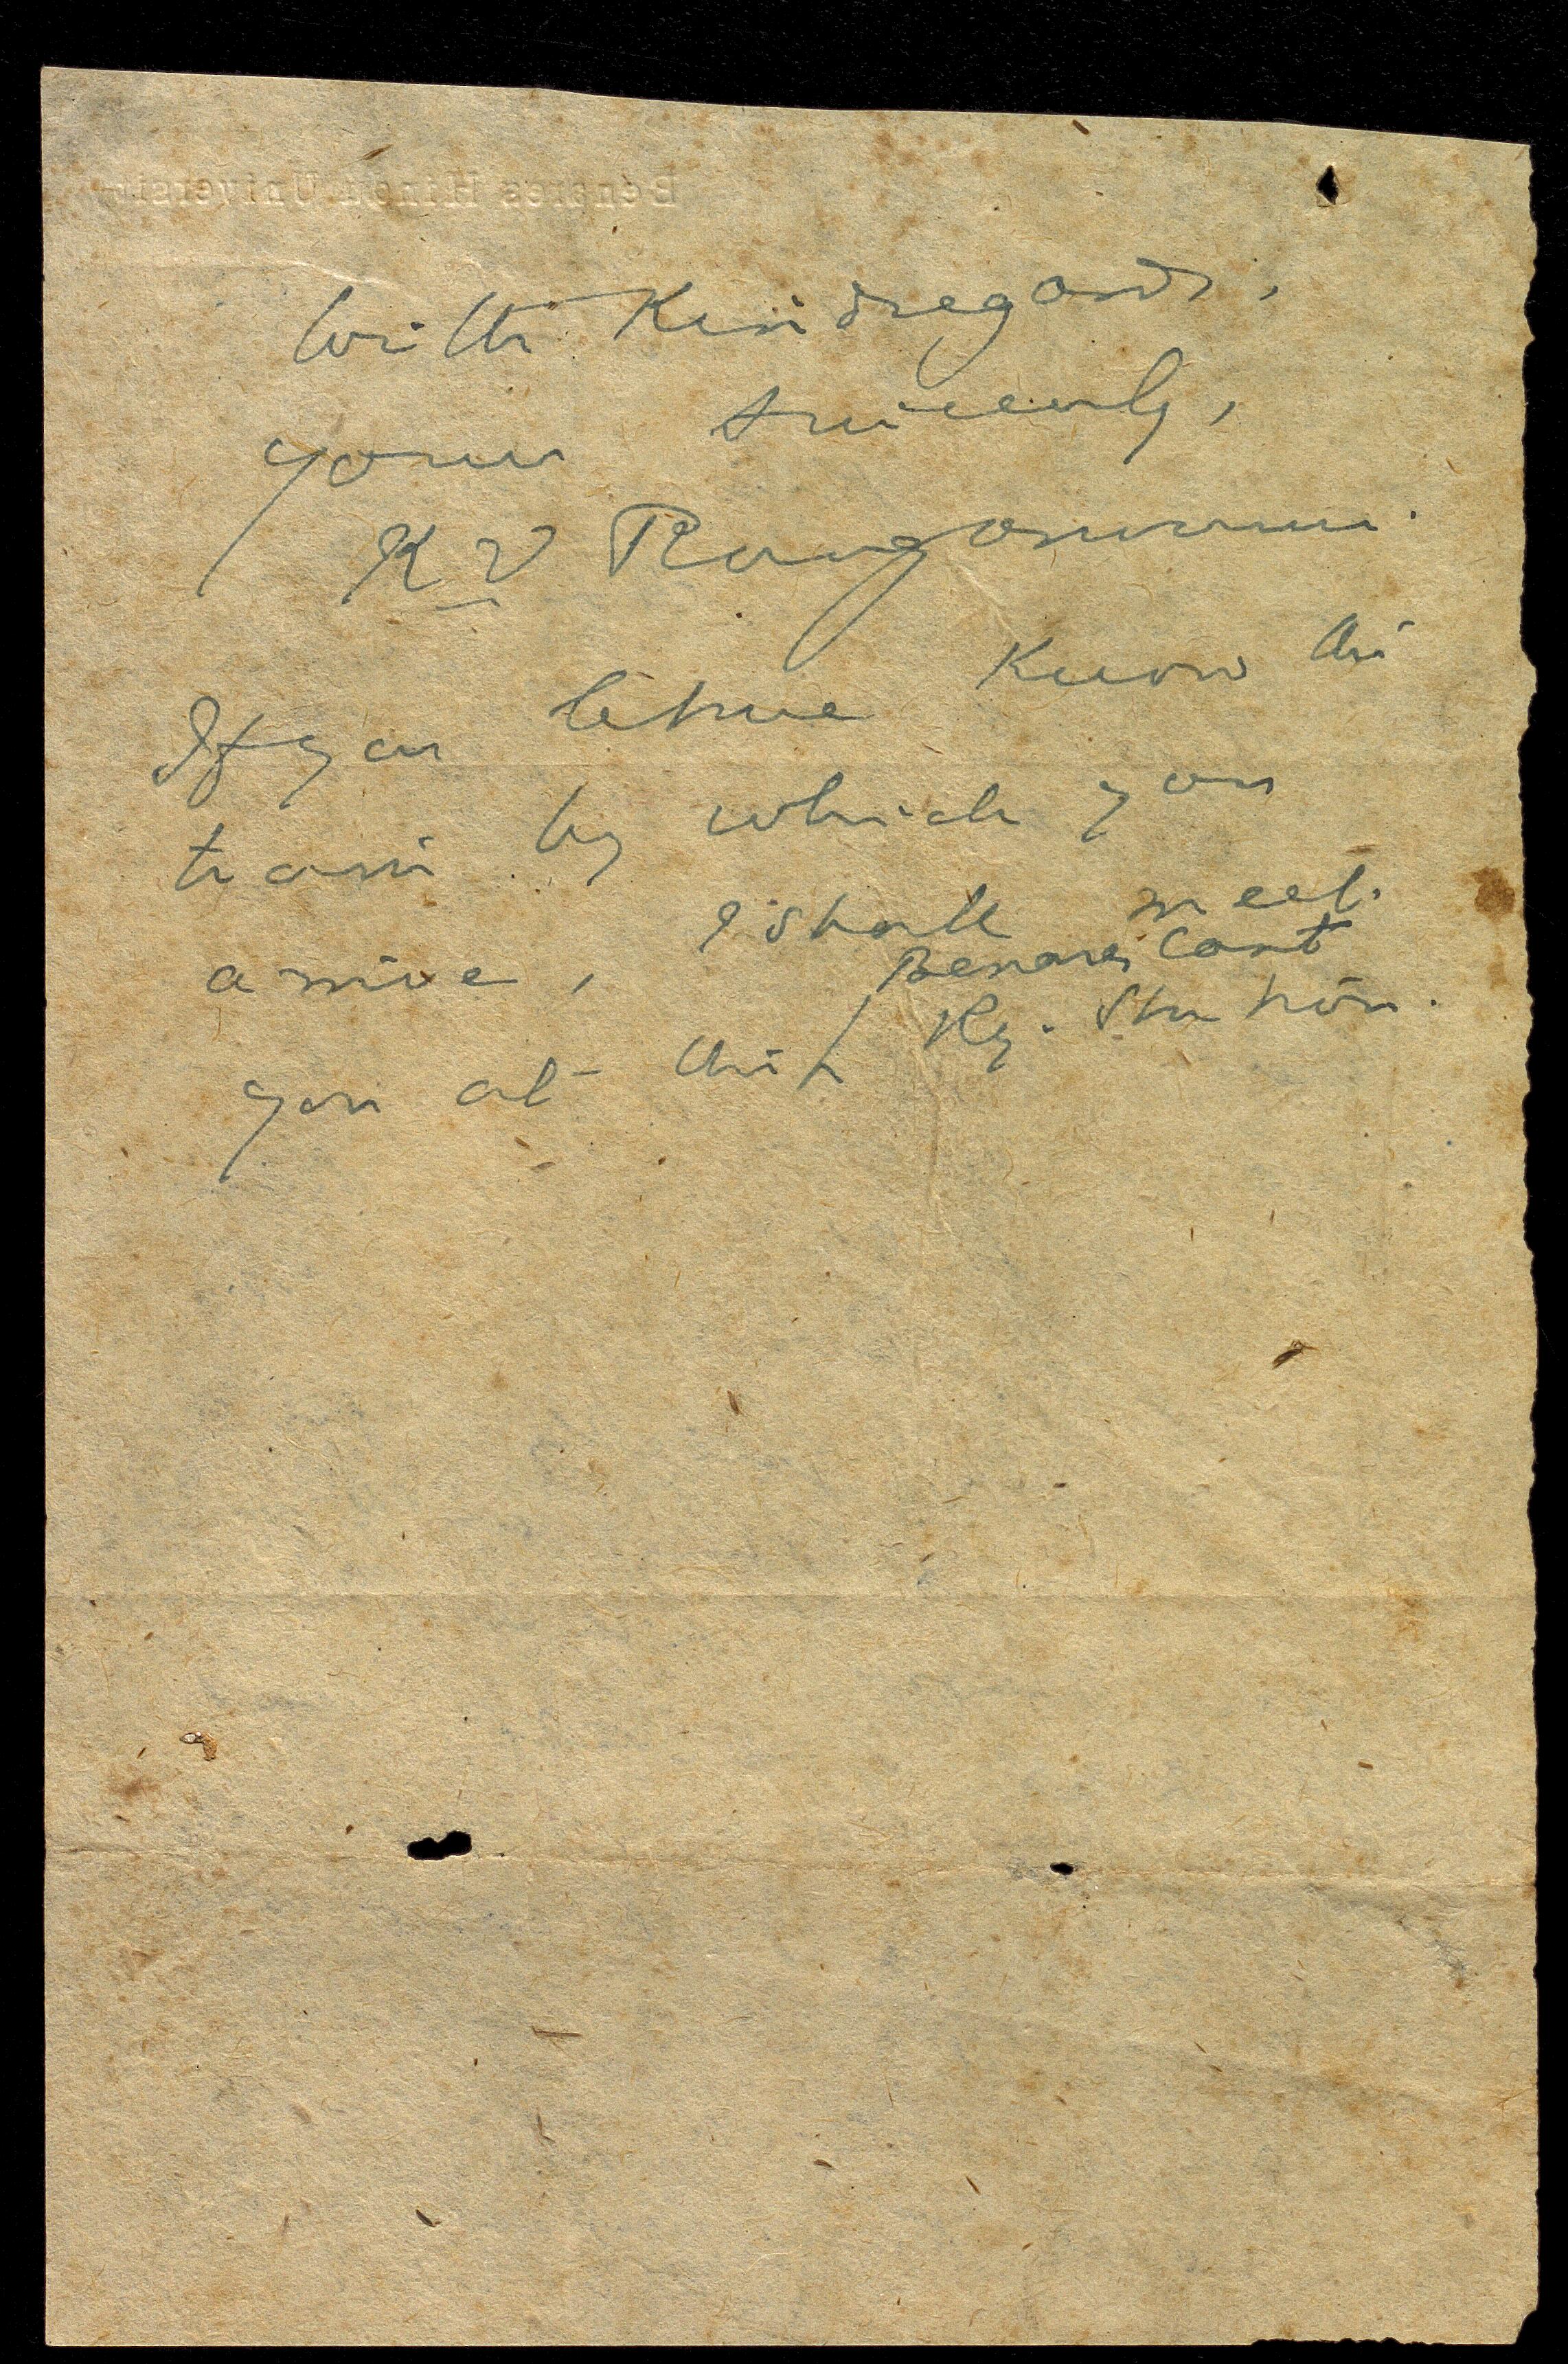 Benares Hindu University
With Kind regards,
yours sincerely,
K V Rangaswami.
If you let me know the
train by which you
arrive, I shall meet
you at the Benares Cant
Ry. Station.